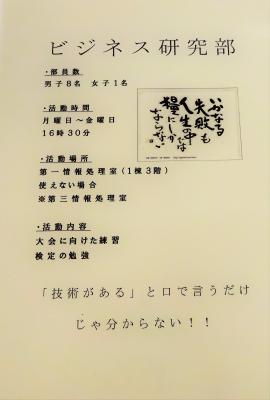 ビジネス研究部
・部員数
男子8名 女子1名
・活動時間
月曜日～金曜日
16時30分
・活動場所
第一情報処理室(1棟3階)
使えない場合
※第三情報処理室
・活動内容
大会に向けた練習
検定の勉強
いかなる
失敗も
人生の中では
糧にしか
ならない
「技術がある」と口で言うだけ
じゃ分からない！！